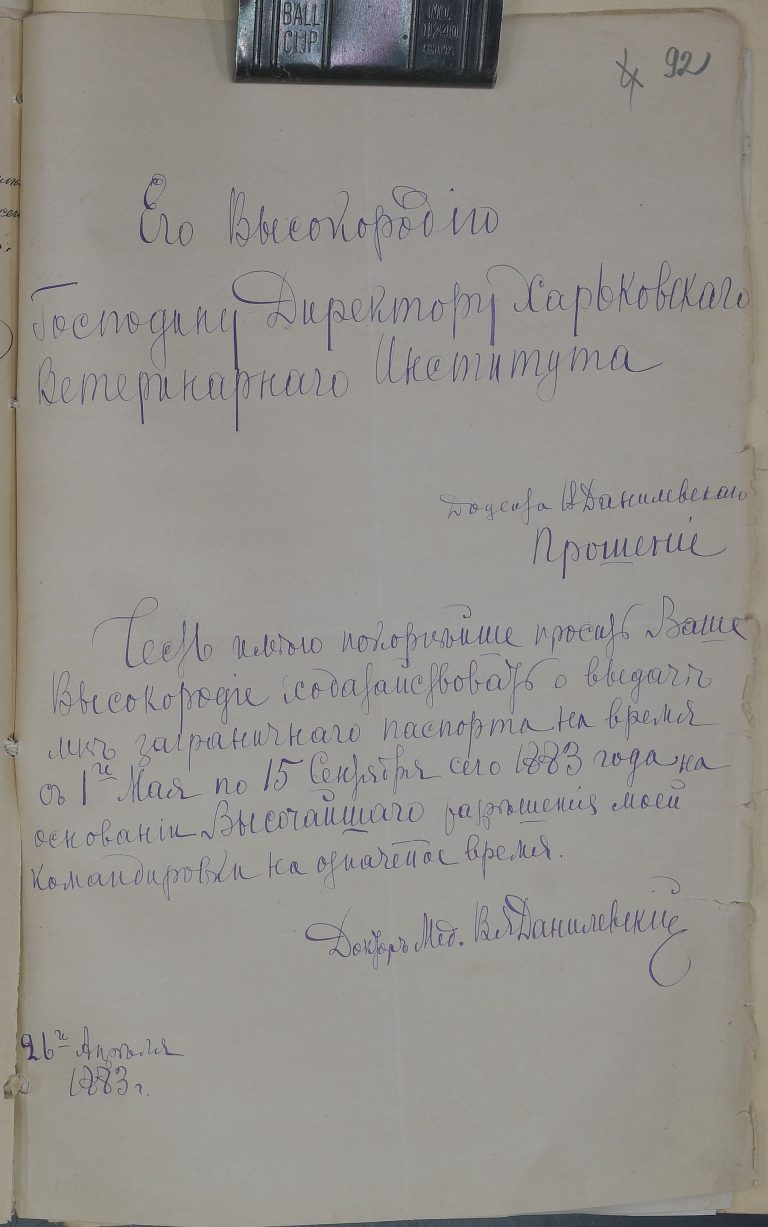 BALL
CLIP
NO.
92
Его Высокородію
Господину Директору Харьковскаго
Ветеринарнаго Института
Доцента Данилевскаго
Прошеніе
Честь имѣю покорнѣйше просить Ваше
Высокородіе ходатайствовать о выдачѣ
мнѣ заграничнаго паспорта на время
съ 1го Мая по 15 Сентября сего 1883 года на
основаніи Высочайшаго разрѣшенія моей
командировки на означеное время.
Докторъ Мед. В Данилевскій
26го Апрѣля
1883 г.